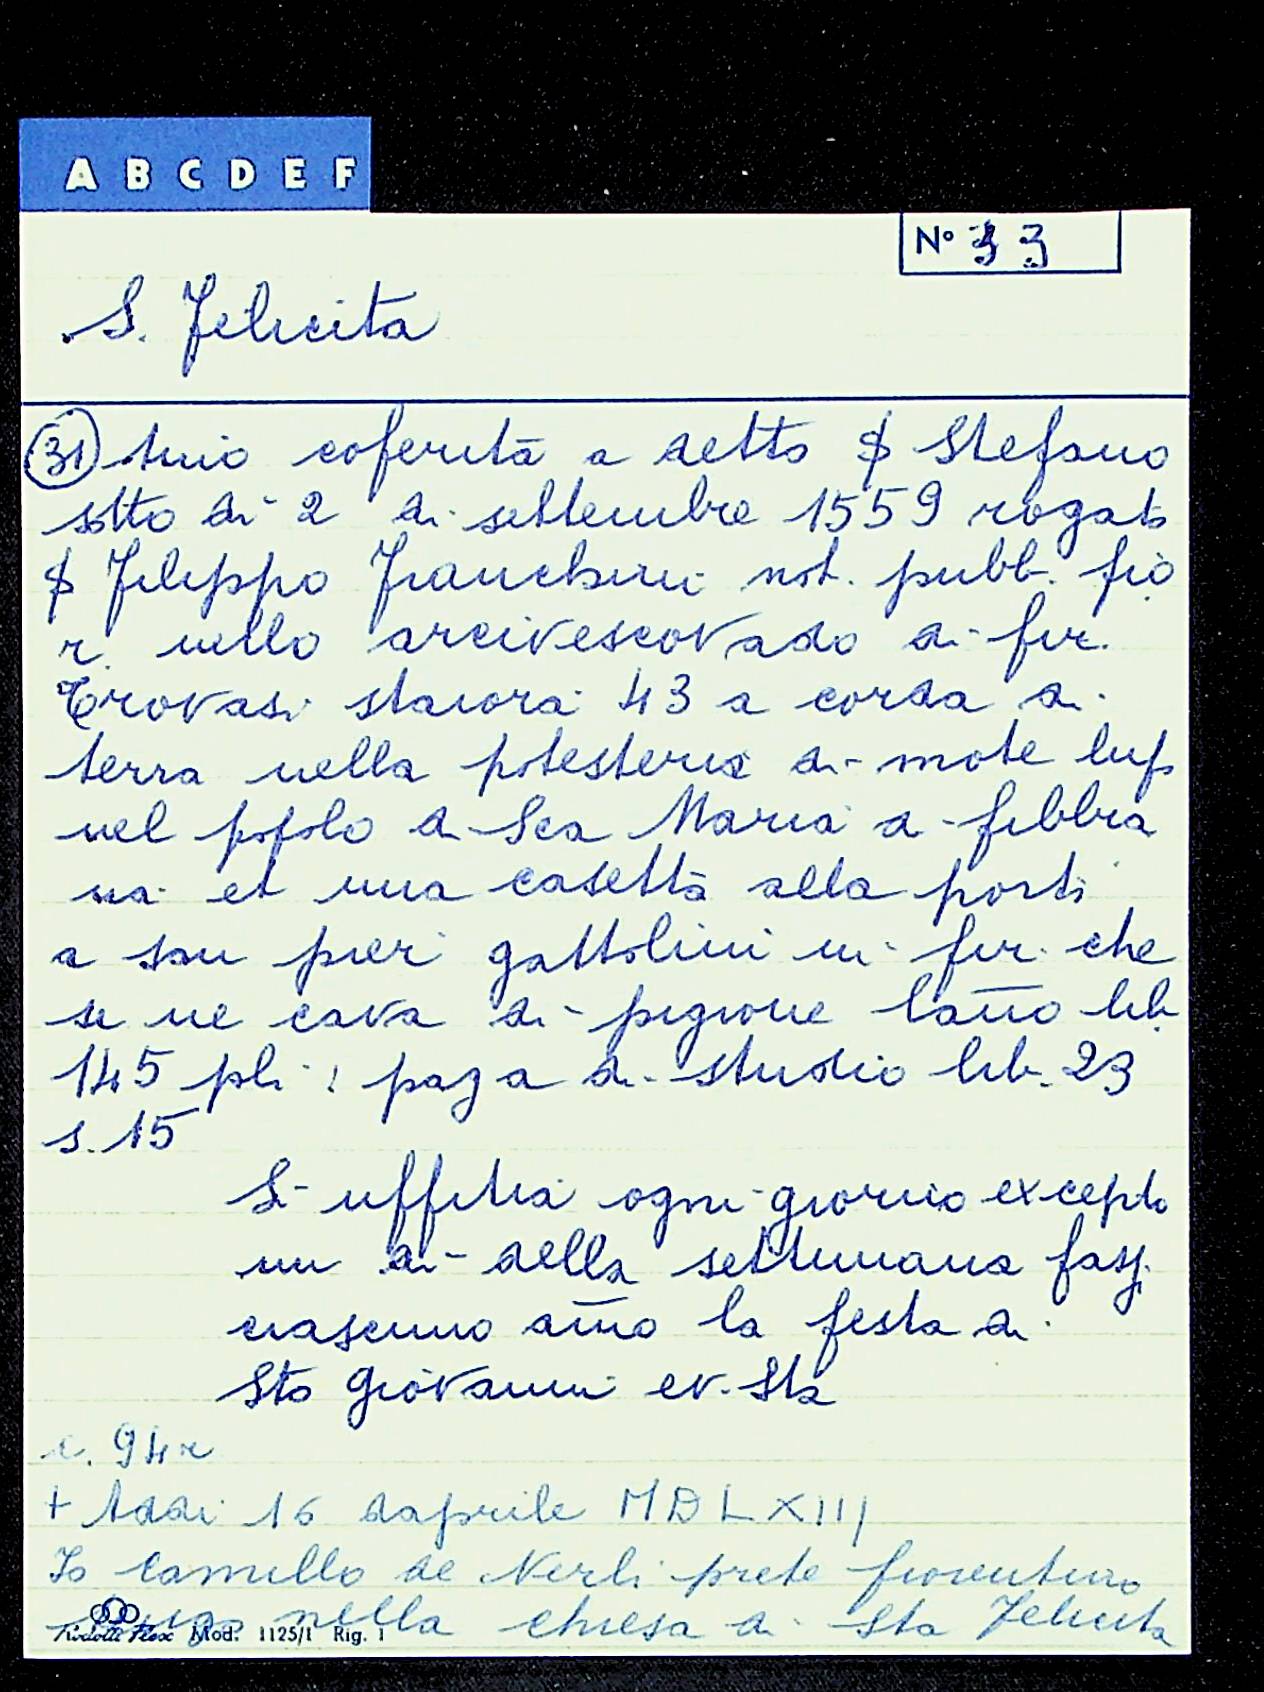 A B C D E F
Nº 33
S. Felicita
(31) tino coferita a detto $ Stefano
sotto di 2 di settembre 1559 rogato
$ Filippo Franchini not. pubb. fio
r. nello arcivescovado di fir.
Trovasi staiora 43 a corda di
terra nella potesteria di mote lup
nel popolo di Sca Maria a fibbia
na et una casetta alla porti
a san pier gattolini in fir. che
se ne cava di pigione lano lib.
145 pli : paga di studio lib. 23
s. 15
Si uffitia ogni giorno excepto
un di della settimana fassi
ciascuno ano la festa di
Sto Giovanni ev.sta
c. 94r
+ Addi 16 daprile MDLXIII
Io Camillo de Nerli prete fiorentino
nella chiesa di Sta Felicita
Mod. 1125/1 Rig. 1